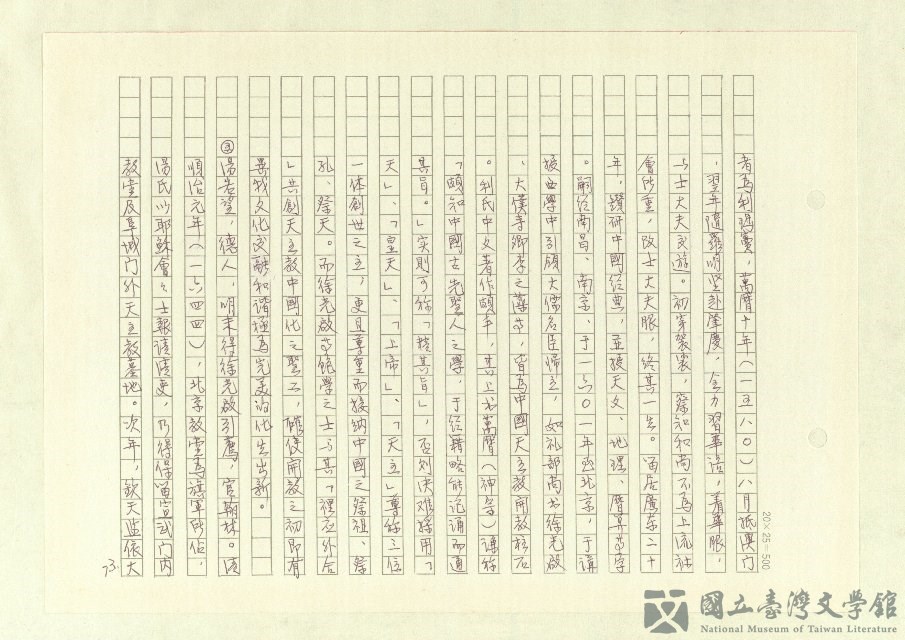 者為利瑪竇，萬曆十年（一五八〇）八月抵澳門
，翌年隨羅明堅赴肇慶，全力習華語，着華服，
与士大夫交遊。初穿袈裟，察知和尚不為上流社
會所重，改士大夫服，終其一生。留居廣东二十
年，鑽研中國经典，並授天文、地理、曆算等字
。嗣经南昌、南京、于一六〇一年至北京，于講
授西學中引領大儒名臣歸主，如礼部尚书徐光啟
、大僕寺卿李之藻等，皆為中國天主教開教柱石
。利氏中文著作頗丰，其上书萬曆（神宗）谦称
「頗知中國古先聖人之學，于经籍略能記诵而通
其旨。」实則可称「精其旨」，否則决难採用「
天」、「皇天」、「上帝」、「天主」尊称三位
一体創世之主；更且尊重而接纳中國之祭祖、祭
孔、祭天。而徐光啟等飽學之士与其「裡应外合
」共創天主教中國化之聖工，確使開教之初即有
異我文化交融和谐極為完美的化生出新。
③湯若望，德人，明末得徐光啟引薦，官翰林。清
順治元年（一六四四），北京教堂為旗軍所佔，
湯氏以耶穌會之士報請清吏，乃得保留宣武门内
教堂及阜城門外天主教墓地。次年，欽天监依大
73.
20×25=500
國立臺灣文學館
National Museum of Taiwan Literature